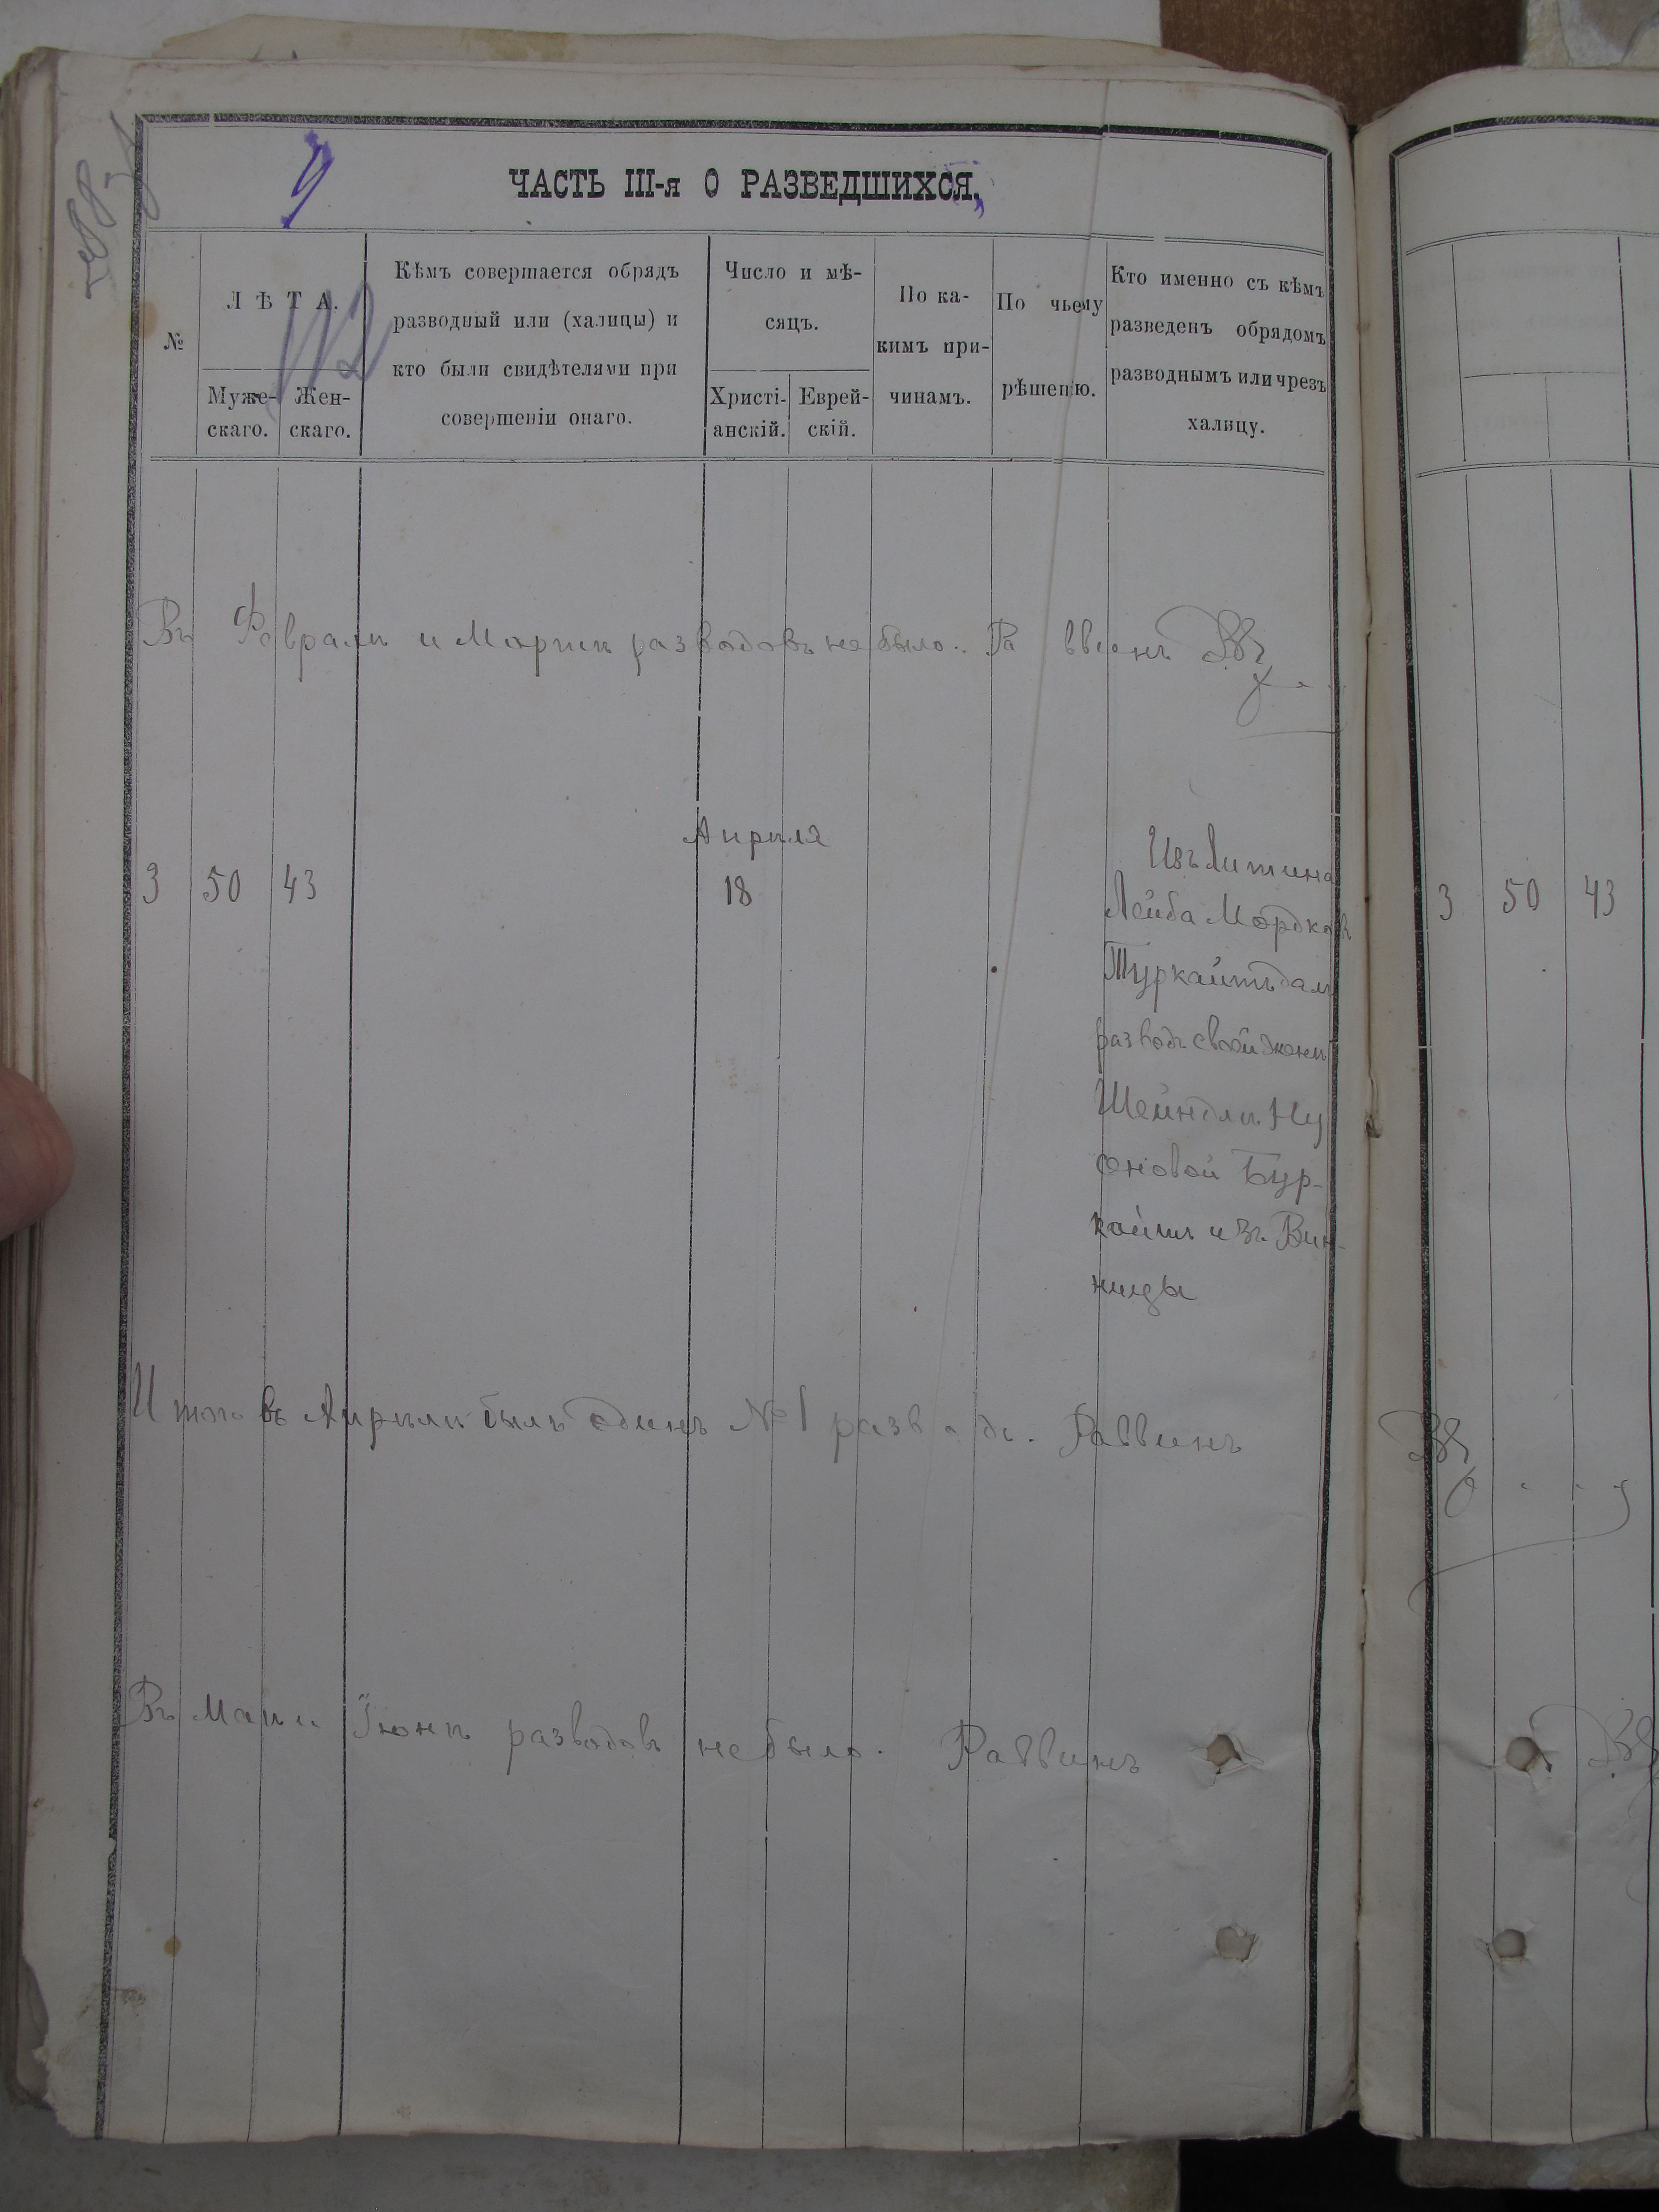 9
ЧАСТЬ III-я О РАЗВЕДШИХСЯ,
№
ЛѢТА.
Муже-
скаго.
Жен-
скаго.
112
Кѣмъ совершается обрядъ
разводный или (халицы) и
кто были свидѣтелями при
совершеніи онаго.
Число и мѣ-
сяцъ.
Христі-
анскій.
Еврей-
скій.
По ка-
кимъ при-
чинамъ.
По чьему
рѣшенію.
Кто именно съ кѣмъ
разведенъ обрядомъ
разводнымъ или чрезъ
халицу.
Въ Февралѣ и Мартѣ разводовъ не было. Раввинъ
Апрѣля
3 50 43 18
Изъ Литина
Лейба Мордков
далъ
разводъ своей женѣ
Шейндли Ну
соновой Бур-
кайтъ изъ Вин-
ницы
3 50 43
Итого въ Апрѣлѣ былъ одинъ № 1 разводъ. Раввинъ
Въ Маѣ и Іюнѣ разводовъ не было. Раввинъ